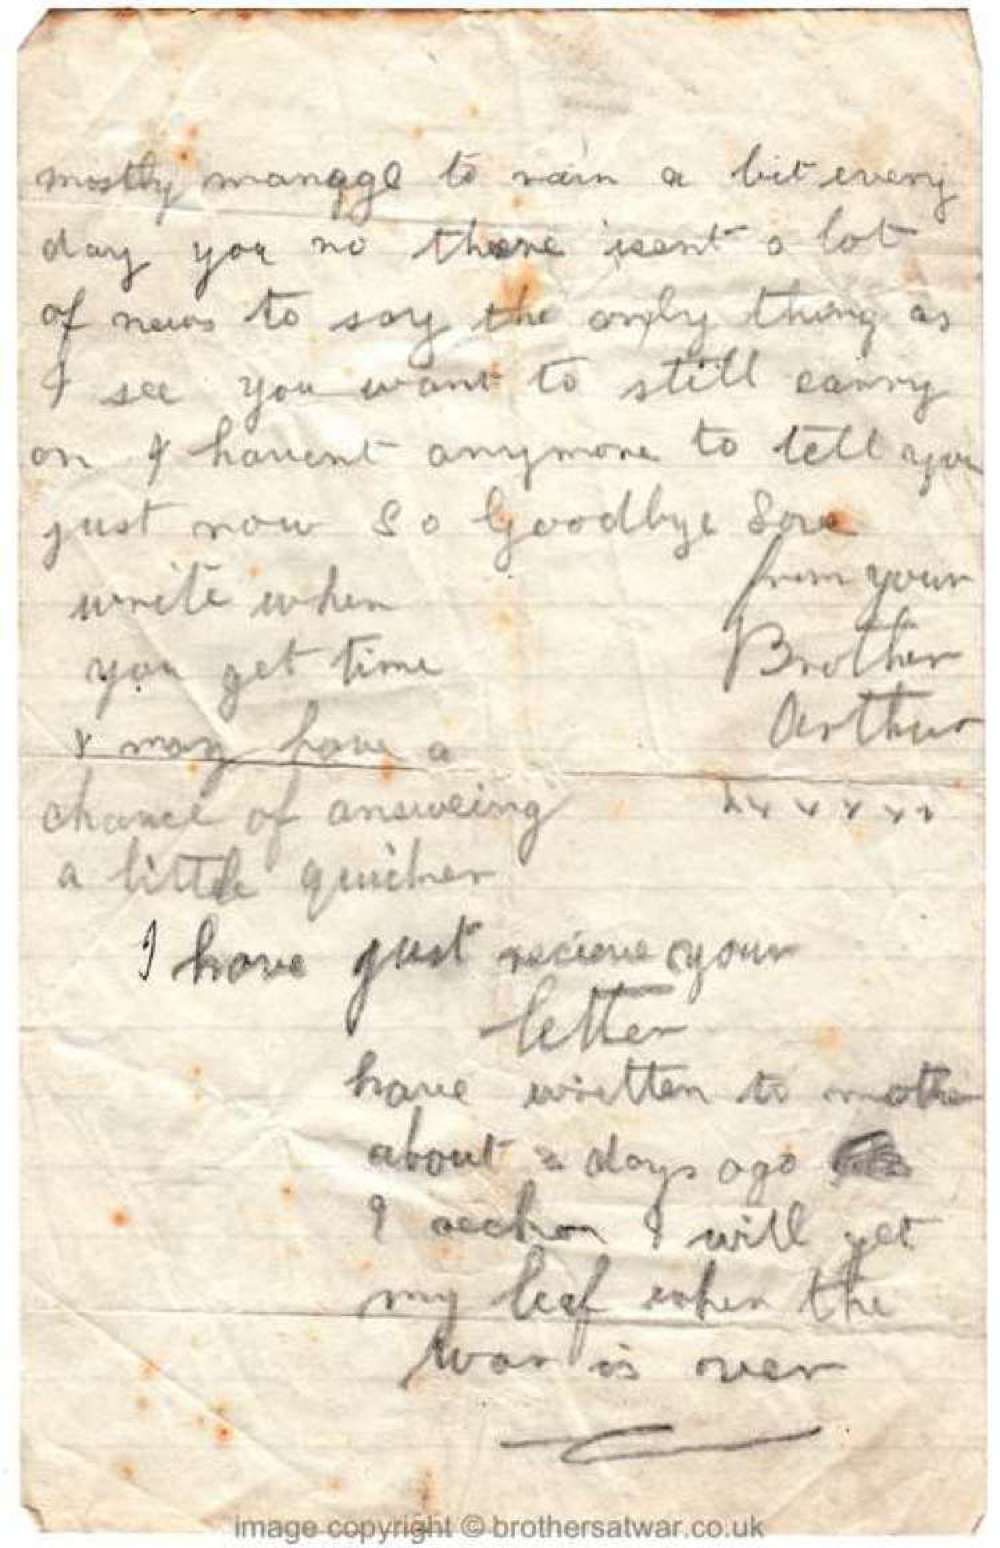 mostly manage to rain a bit every
day you no there isent a lot
of news to say the only thing as
I see you want to still carry
on I havent anymore to tell you
just now So Goodbye
from your
Brother
Arthur
write when
you get time
I may have a
chance of answeing
a little quicker
I have just recieve your
letter
have written to mother
about 2 days ago
I reckon I will get
my leaf when the
war is over
image copyright © brothersatwar.co.uk